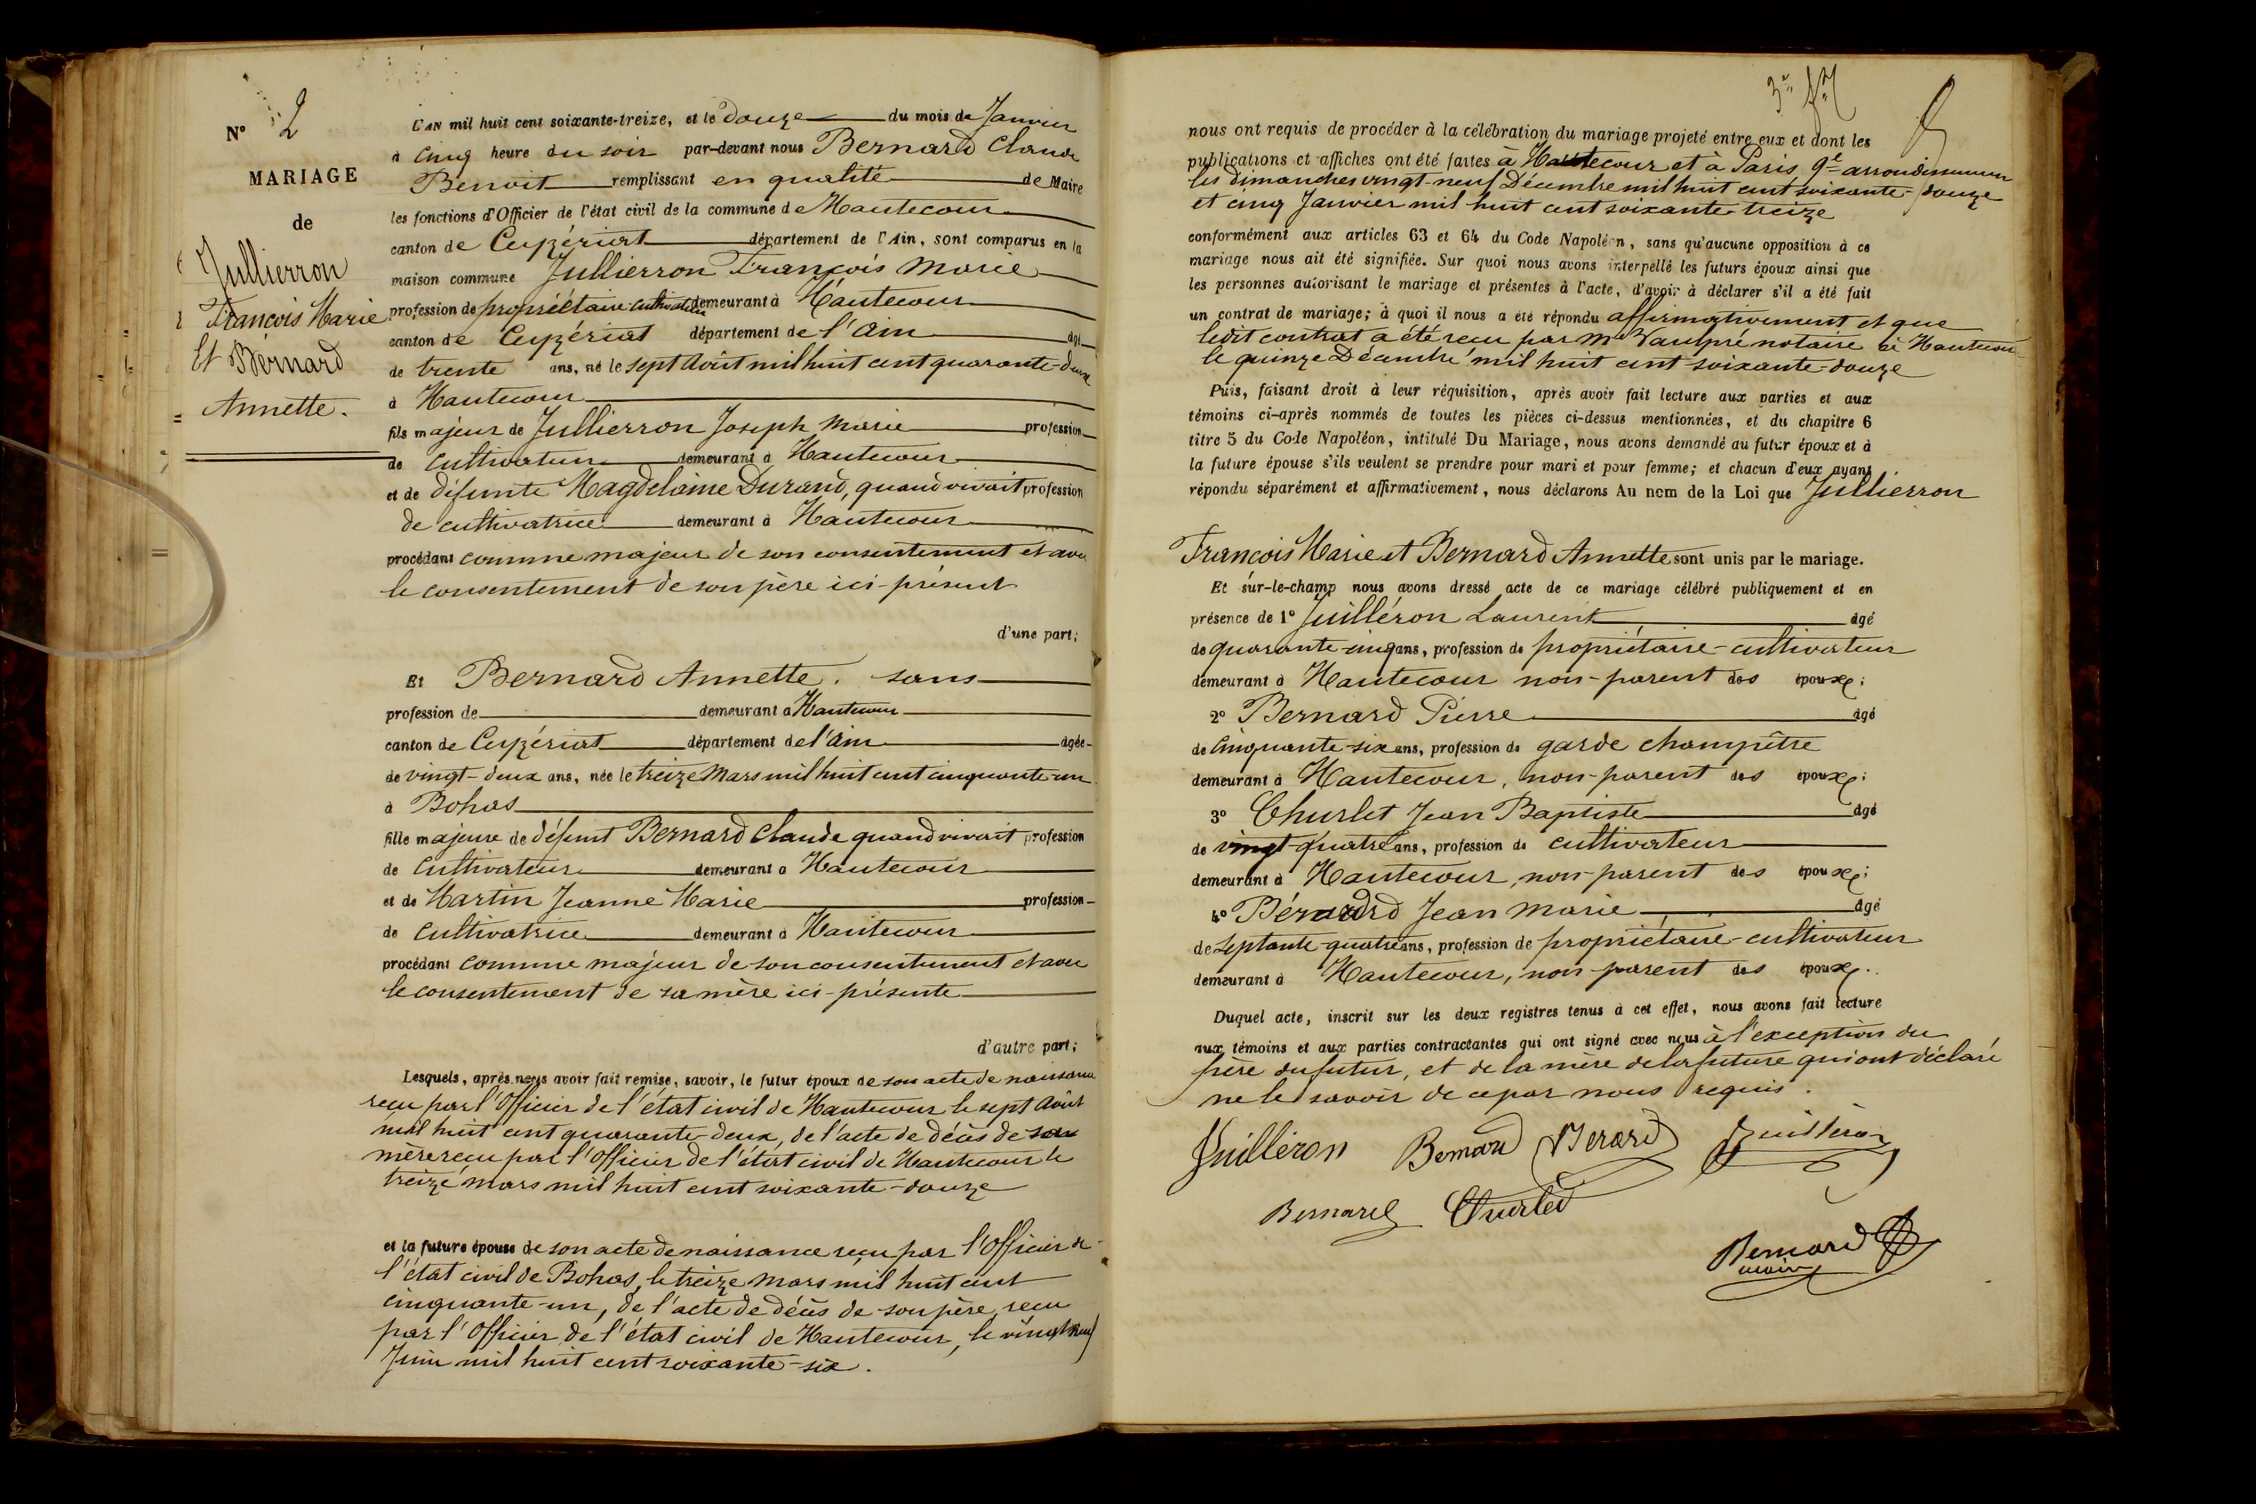 N° 2
MARIAGE
de
Jullierron
François Marie
Et Bernard
Annette.
L'AN mil huit cent soixante-treize, et le douze du mois de Janvier
à cinq heure du soir par-devant nous Bernard Claude
Benoit remplissant en qualité de Maire
les fonctions d'Officier de l'état civil de la commune de Hautecour
canton de Ceyzériat département de l'Ain, sont comparus en la
maison commune Jullierron François Marie
profession de propriétaire-cultivateur demeurant à Hautecour
canton de Ceyzériat département de l'Ain âgé
de trente ans, né le sept Août mil huit cent quarante-deux
à Hautecour
fils majeur de Jullierron Joseph Marie profession
de cultivateur demeurant à Hautecour
et de défunte Magdelaine Durand, quand vivait profession
de cultivatrice demeurant à Hautecour
procédant comme majeur de son consentement et avec
le consentement de son père ici-présent
d'une part;
Et Bernard Annette. sans
profession de demeurant à Hautecour
canton de Ceyzériat département de l'Ain âgée
de vingt-deux ans, née le treize Mars mil huit cent cinquante-un
à Bohas
fille majeure de défunt Bernard Claude quand vivait profession
de cultivateur demeurant à Hautecour
et de Martin Jeanne Marie profession
de cultivatrice demeurant à Hautecour
procédant comme majeur de son consentement et avec
le consentement de sa mère ici-présente
d'autre part;
Lesquels, après nous avoir fait remise, savoir, le futur époux de son acte de naissance
reçu par l'Officier de l'état civil de Hautecour le sept Août
mil huit cent quarante-deux, de l'acte de décès de sa
mère reçu par l'Officier de l'état civil de Hautecour le
treize mars mil huit cent soixante-douze
et la future épouse de son acte de naissance reçu par l'Officier de
l'état civil de Bohas, le treize Mars mil huit cent
cinquante-un, de l'acte de décès de son père, reçu
par l'Officier de l'état civil de Hautecour, le vingt neuf
Juin mil huit cent soixante-six.
nous ont requis de procéder à la célébration du mariage projeté entre eux et dont les
publications et affiches ont été faites à Hautecour et à Paris 9e arrondissement
les dimanches vingt-neuf Décembre mil huit cent soixante-douze
et cinq Janvier mil huit cent soixante-treize
conformément aux articles 63 et 64 du Code Napoléon, sans qu'aucune opposition à ce
mariage nous ait été signifiée. Sur quoi nous avons interpellé les futurs époux ainsi que
les personnes autorisant le mariage et présentes à l'acte, d'avoir à déclarer s'il a été fait
un contrat de mariage; à quoi il nous a été répondu affirmativement et que
ledit contrat a été reçu par Me Vaulpré notaire à Hautecour
le quinze Décembre mil huit cent soixante-douze
Puis, faisant droit à leur réquisition, après avoir fait lecture aux parties et aux
témoins ci-après nommés de toutes les pièces ci-dessus mentionnées, et du chapitre 6
titre 5 du Code Napoléon, intitulé Du Mariage, nous avons demandé au futur époux et à
la future épouse s'ils veulent se prendre pour mari et pour femme; et chacun d'eux ayant
répondu séparément et affirmativement, nous déclarons Au nom de la Loi que Jullierron
François Marie et Bernard Annette sont unis par le mariage.
Et sur-le-champ nous avons dressé acte de ce mariage célébré publiquement et en
présence de 1° Juilléron Laurent âgé
de quarante-cinq ans, profession de propriétaire-cultivateur
demeurant à Hautecour non-parent des époux;
2° Bernard Pierre âgé
de cinquante-six ans, profession de garde champêtre
demeurant à Hautecour, non-parent des époux;
3° Churlet Jean Baptiste âgé
de vingt-quatre ans, profession de cultivateur
demeurant à Hautecour, non-parent des époux;
4° Bérard Jean Marie âgé
de septante-quatre ans, profession de propriétaire-cultivateur
demeurant à Hautecour, non-parent des époux.
Duquel acte, inscrit sur les deux registres tenus à cet effet, nous avons fait lecture
aux témoins et aux parties contractantes qui ont signé avec nous à l'exception du
père du futur, et de la mère de la future qui ont déclaré
ne le savoir de ce par nous requis.
Juilleron Bernard Berard Juilleron
Bernard Churlet
Bernard
maire